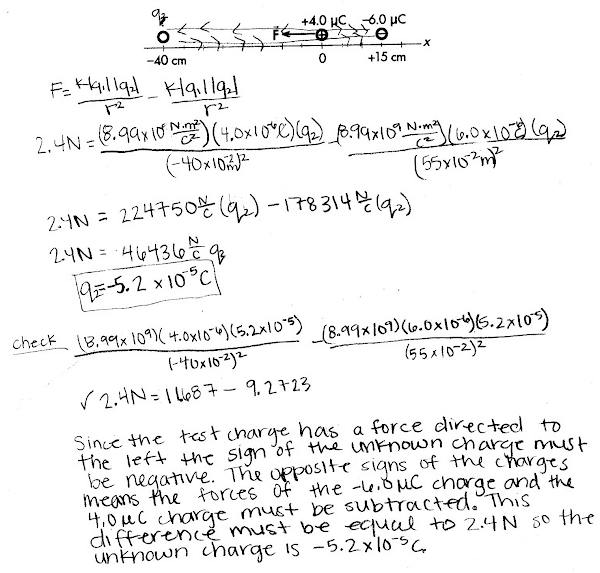 q₂
+4.0 μC -6.0 μC
F
x
-40 cm 0 +15 cm
F = k|q₁||q₂| / r² - k|q₁||q₂| / r²
2.4N = (8.99x10⁹ N·m²/C²)(4.0x10⁻⁶C)(q₂) / (-40x10⁻²m)² - (8.99x10⁹ N·m²/C²)(6.0x10⁻⁶C)(q₂) / (55x10⁻²m)²
2.4N = 224750 N/C (q₂) - 178314 N/C (q₂)
2.4N = 46436 N/C q₂
q₂ = -5.2 x 10⁻⁵C
check (8.99x10⁹)(4.0x10⁻⁶)(5.2x10⁻⁵) / (-40x10⁻²)² - (8.99x10⁹)(6.0x10⁻⁶)(5.2x10⁻⁵) / (55x10⁻²)²
✓ 2.4N = 11.687 - 9.2723
Since the test charge has a force directed to
the left the sign of the unknown charge must
be negative. The opposite signs of the charges
means the forces of the -6.0μC charge and the
4.0μC charge must be subtracted. This
difference must be equal to 2.4N so the
unknown charge is -5.2x10⁻⁵C.